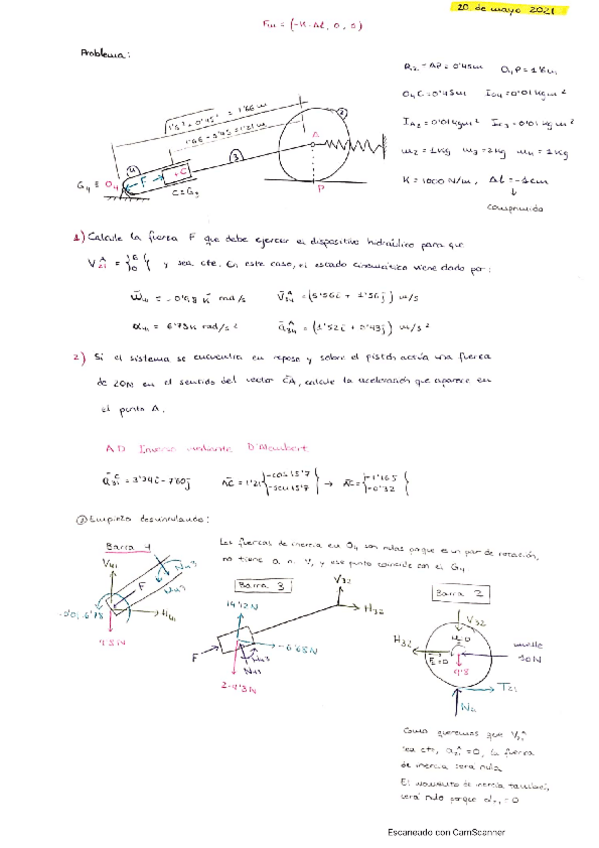 20 de mayo 2021
Fm = (-K·Δl, 0, 0)
Problema:
R2 = AP = 0'45m   O4P = 1'6m
O4C = 0'45m   IG4 = 0'01 kgm²
IA2 = 0'01 kgm²   IC3 = 0'01 kg m²
m2 = 1Kg   m3 = 2Kg   m4 = 1Kg
K = 1000 N/m,   Δl = -1cm
comprimido
√1'6² + 0'45² = 1'66 m
1'66 - 0'45 = 1'21 m
G4 ≡ O4
F
C
C ≡ G3
4
3
2
A
P
1) Calcule la fuerza F que debe ejercer el dispositivo hidráulico para que
V21^A = {6 0} y sea cte. En este caso, el estado cinemático viene dado por:
ω̄41 = -0'68 K̄ rad/s   V̄34^A = (5'56ī + 1'56j̄) m/s
α41 = 6'73K rad/s²   ā34^A = (1'52ī + 0'43j̄) m/s²
2) Si el sistema se encuentra en reposo y sobre el pistón actúa una fuerza
de 20N en el sentido del vector CA, calcule la aceleración que aparece en
el punto A.
AD Inverso mediante D'Alembert
ā31^C = 3'34ī - 7'60j̄   AC = 1'21 {-cos 15'7 -sen 15'7} → AC = {-1'165 -0'32}
① Empiezo desvinculando:
Las fuerzas de inercia en O4 son nulas porque es un par de rotación,
no tiene a ni V, y ese punto coincide con el G4
Barra 4
V41
N43
M43
F
H41
-0'01·6'73
9'8N
Barra 3
V32
H32
14'12N
-6'68N
F
M43
N43
2·9'8N
Barra 2
V32
H32
M=0
Fi=0
9'8
muelle
10N
T21
N2
Como queremos que V21^A
sea cte, a21^A = 0, la fuerza
de inercia será nula
El momento de inercia también
será nulo porque α21 = 0
Escaneado con CamScanner